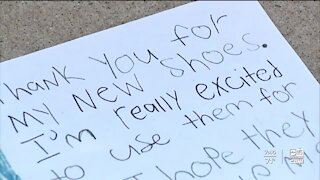 Thank You for
My New Shoes.
I'm really excited
to use them for
I hope they